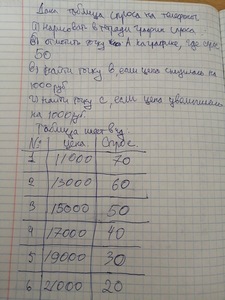 Дана таблица спроса на телефоны
а) нарисовать в тетради график спроса
б) отметить точку A на графике, где спрос
50
в) Найти точку B, если цена снизилась на
1000 руб
г) Найти точку C, если цена увеличилась
на 1000 руб.
Таблица
№ Цена Спрос
1 11000 70
2 13000 60
3 15000 50
4 17000 40
5 19000 30
6 21000 20